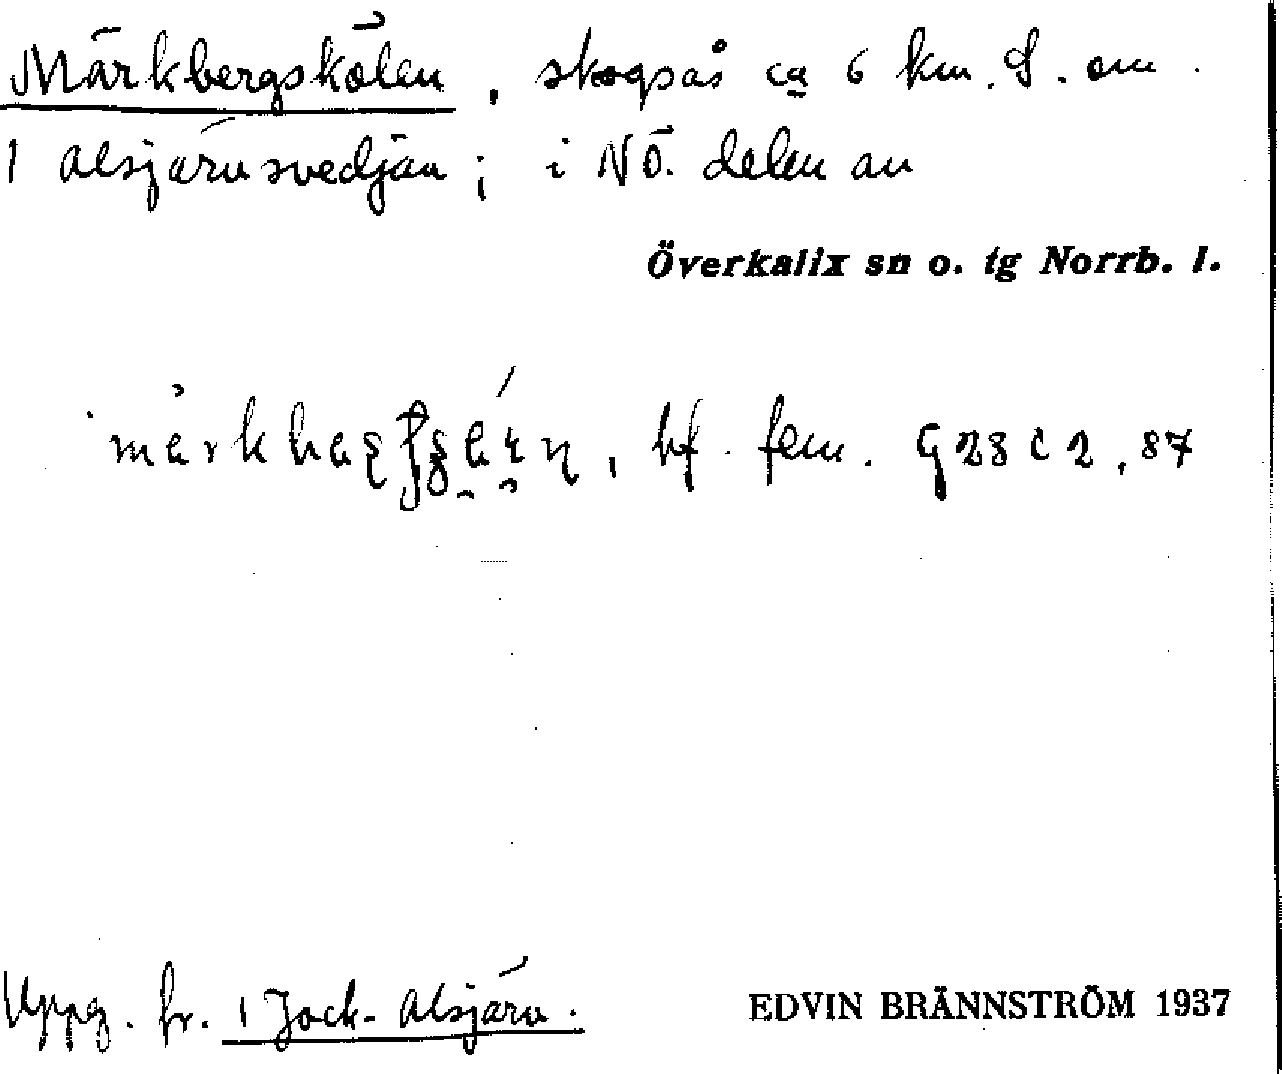 Märkbergskölen, skogsås ca 6 km. S. om
1 Alsjärvsvedjan; i NÖ. delen av
Överkalix sn o. tg Norrb. l.
bf. fem. G 23 c 2, 87
Uppg. fr. 1 Jock- Alsjärv.
EDVIN BRÄNNSTRÖM 1937